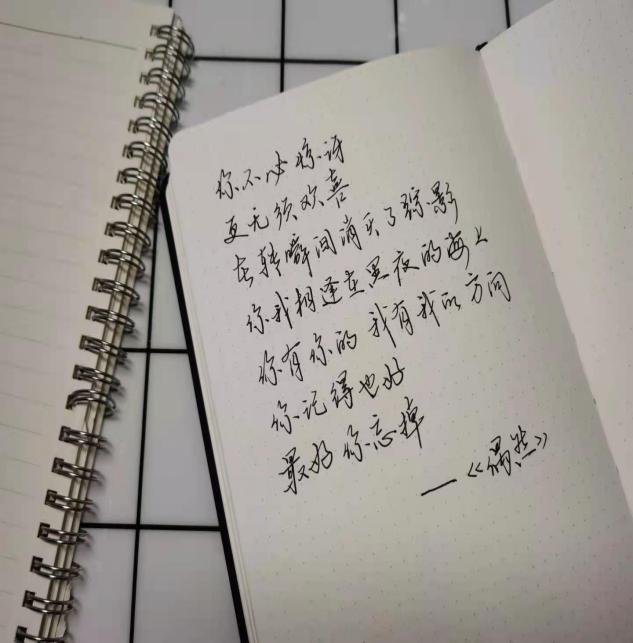 你不必惊讶
更无须欢喜
在转瞬间消灭了踪影
你我相逢在黑夜的海上
你有你的 我有我的方向
你记得也好
最好你忘掉
——《偶然》